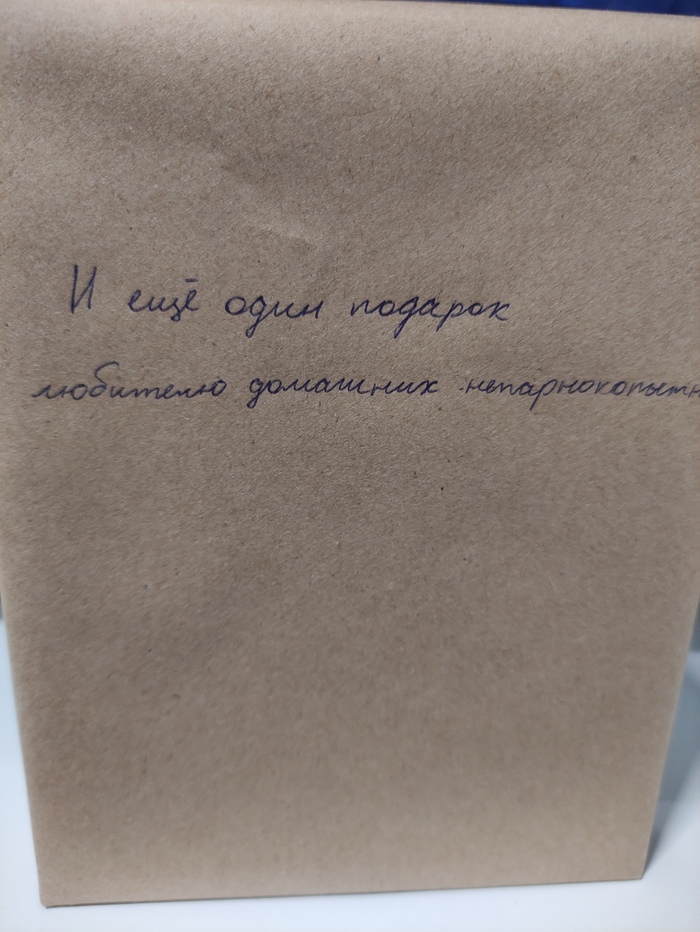 И ещё один подарок
любителю домашних непарнокопытн